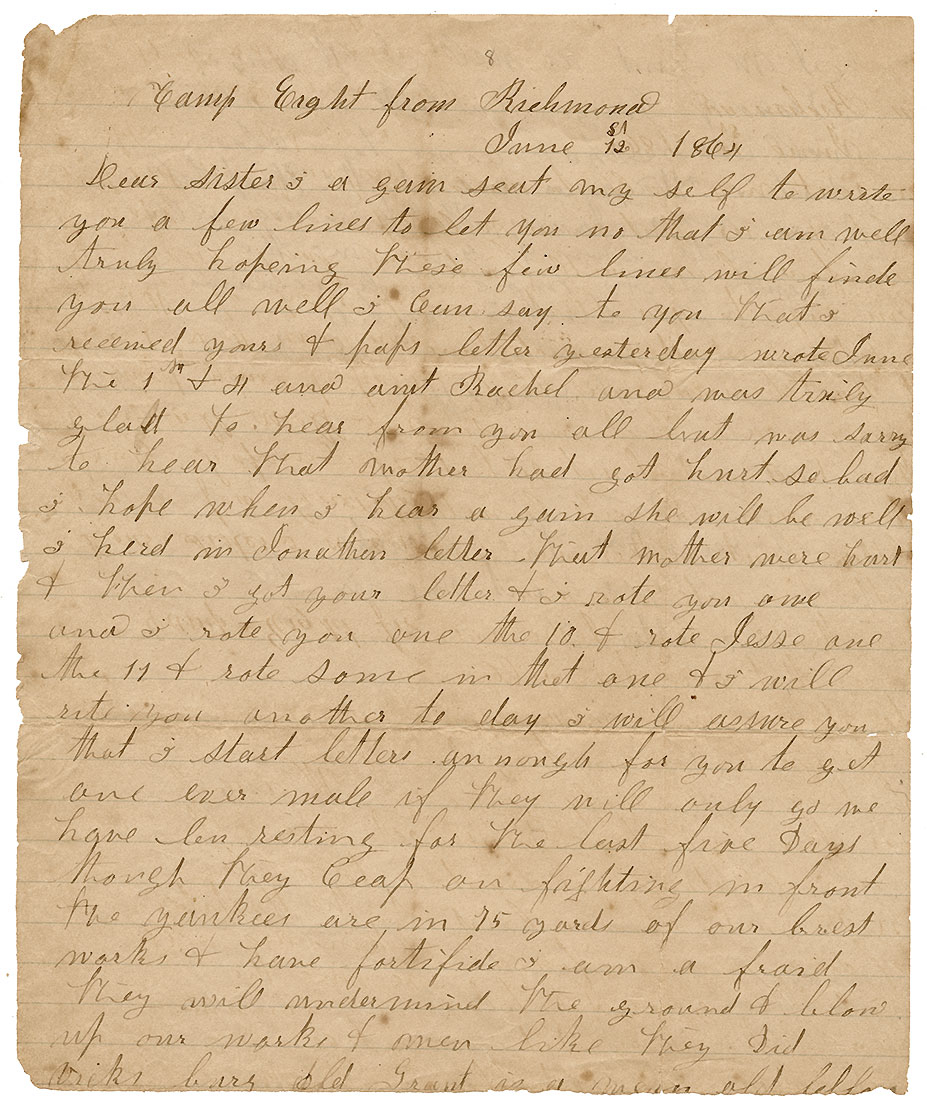 8
Camp Eight from Richmond
June 12 1864
Dear Sister i a gain seat my self to write
you a few lines to let you no that i am well
truly hopeing these few lines will finde
you all well i Can say to you that i
received yours & paps letter yesterday wrote June
the 1 & 4 and aint Rachel and was truly
glad to hear from you all but was sarry
to hear that mother had got hurt so bad
i hope when i hear a gain she will be well
i herd in Jonathen letter that mother were hurt
& then i got your letter & i rote you one
and i rote you one the 10 & rote Jesse one
the 11 & rote some in that one & i will
rite you another to day i will assure you
that i start letters an nough for you to get
one ever male if they will only go we
have ben resting for the last five Days
though they Ceap on fighting in front
the yankees are in 75 yards of our brest
works & have fortifide i am a fraid
they will undermind the ground & blow
up our works & men like they Did
vicks burg old Grant is a mean old fellow